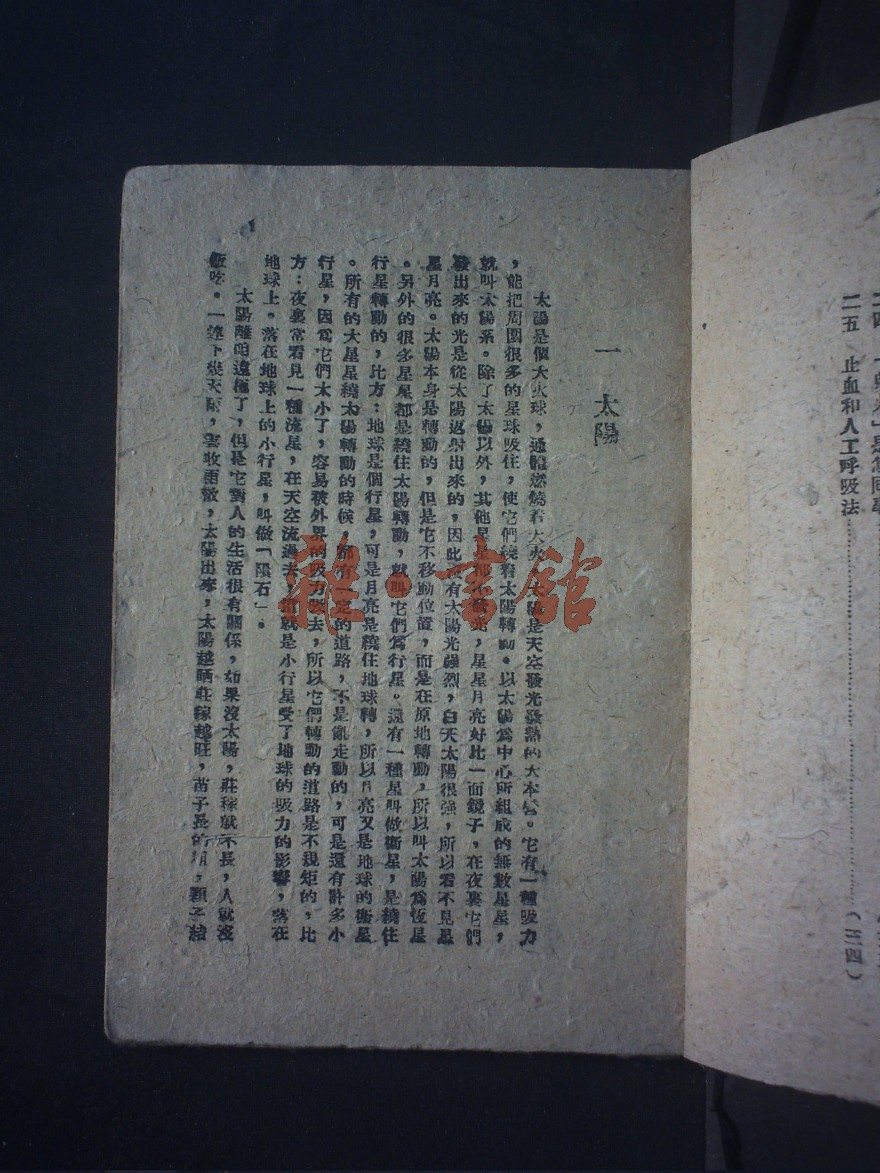 二五　止血和人工呼吸法……(三四)
一　太陽
太陽是個大火球，通體燃燒着大火，太陽是天空發光發熱的大本營。它有一種吸力
，能把周圍很多的星球吸住，使它們繞着太陽轉動。以太陽爲中心所組成的無數星星，
就叫太陽系。除了太陽以外，其他星星都不發光，星星月亮好比一面鏡子，在夜裏它們
發出來的光是從太陽返射出來的，因此沒有太陽光强烈，白天太陽很强，所以看不見星
星月亮。太陽本身是轉動的，但是它不移動位置，而是在原地轉動，所以叫太陽爲恆星
。另外的很多星星都是繞住太陽轉動，就叫它們爲行星。還有一種星叫做衛星，是繞住
行星轉動的，比方：地球是個行星，可是月亮是繞住地球轉，所以月亮又是地球的衛星
。所有的大星星繞太陽轉動的時候，都有一定的道路，不是亂走動的，可是還有許多小
行星，因爲它們太小了，容易被外界的吸力吸去，所以它們轉動的道路是不規矩的，比
方：夜裏常看見一種流星，在天空流過去，這就是小行星受了地球的吸力的影響，落在
地球上。落在地球上的小行星，叫做「隕石」。
太陽離咱遠極了，但是它對人的生活很有關係，如果沒太陽，莊稼就不長，人就沒
飯吃。一連下幾天雨，雲收雨散，太陽出來，太陽越晒莊稼越旺，苗子長的　，顆子結
雜·書館